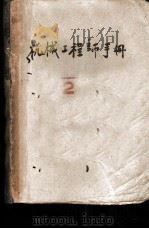 机械工程师手册
2